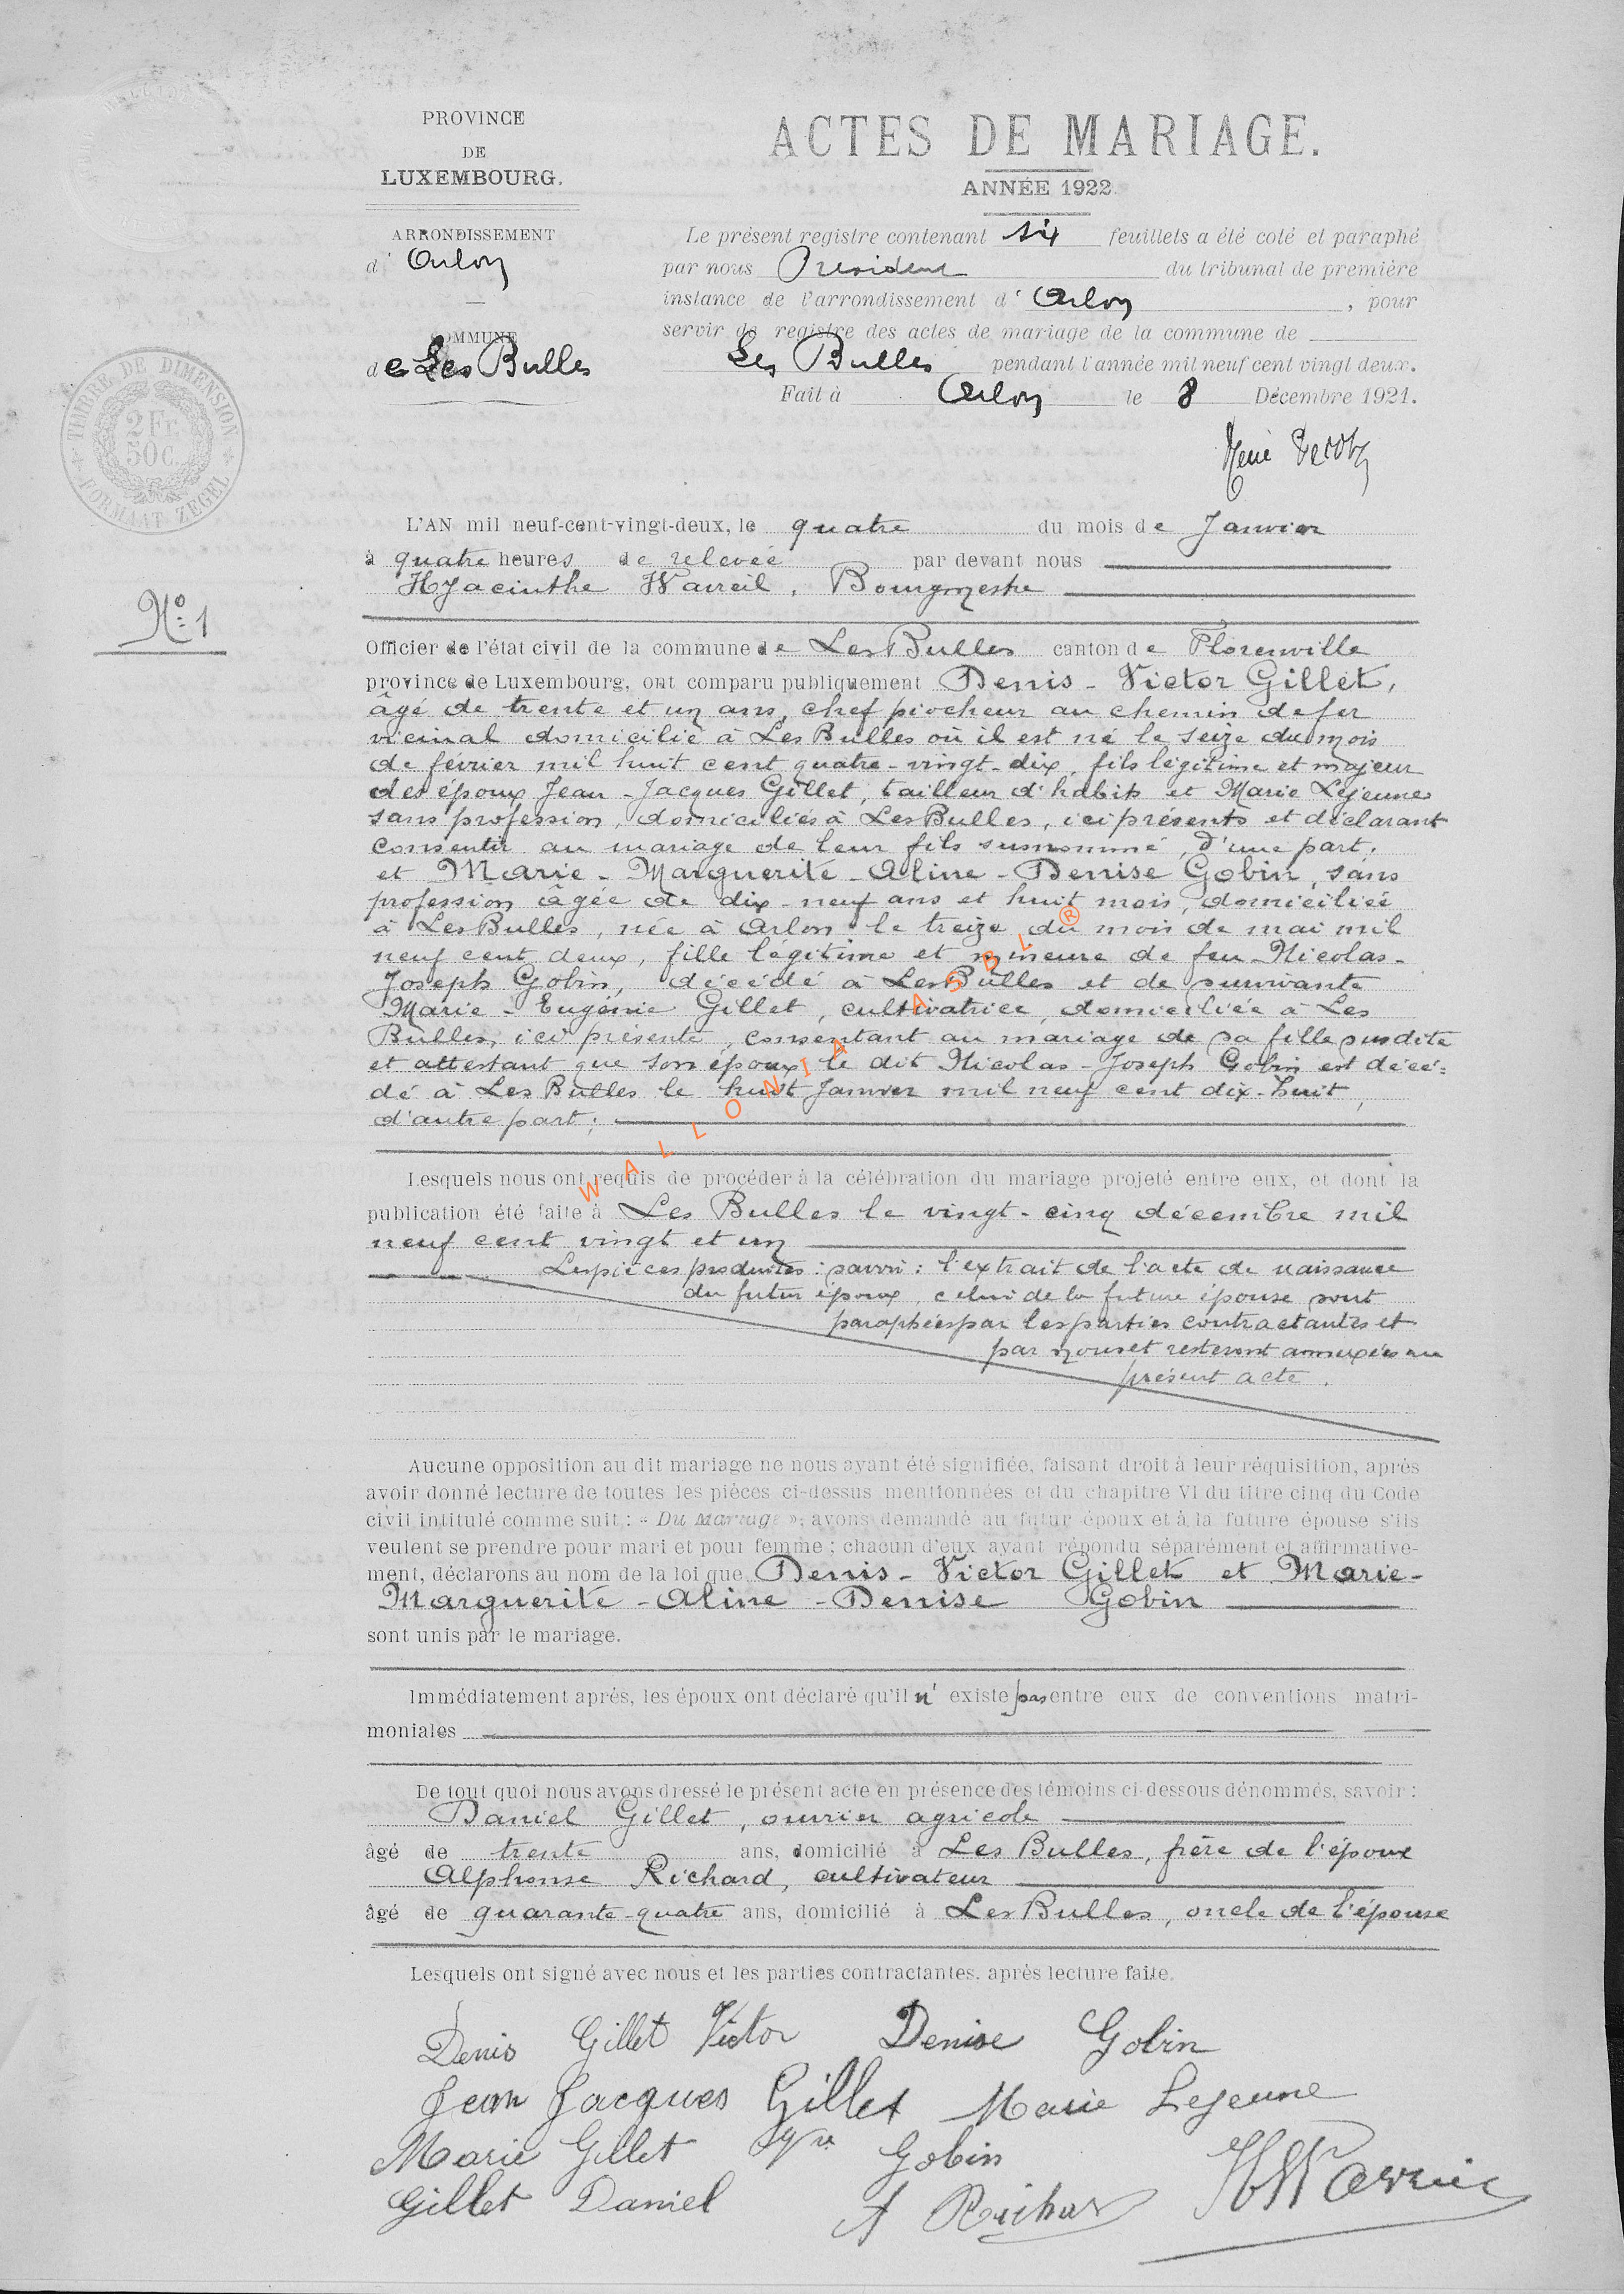 PROVINCE
DE
LUXEMBOURG.
ARRONDISSEMENT
d' Arlon
COMMUNE
de Les Bulles
TIMBRE DE DIMENSION
2 Fr.
50 C.
FORMAAT ZEGEL
ACTES DE MARIAGE.
ANNÉE 1922.
Le présent registre contenant six feuillets a été coté et paraphé
par nous Président du tribunal de première
instance de l'arrondissement d' Arlon, pour
servir de registre des actes de mariage de la commune de
Les Bulles pendant l'année mil neuf cent vingt deux.
Fait à Arlon le 8 Décembre 1921.
René
No 1
L'AN mil neuf-cent-vingt-deux, le quatre du mois de Janvier
à quatre heures de relevée par devant nous
Hyacinthe Bourgmestre
Officier de l'état civil de la commune de Les Bulles canton de Florenville
province de Luxembourg, ont comparu publiquement Denis - Victor Gillet,
âgé de trente et un ans, chef piocheur au chemin de fer
vicinal domicilié à Les Bulles où il est né le seize du mois
de février mil huit cent quatre-vingt-dix, fils légitime et majeur
des époux Jean - Jacques Gillet, tailleur d'habits et Marie Lejeune
sans profession, domiciliés à Les Bulles, ici présents et déclarant
consentir au mariage de leur fils susnommé, d'une part,
et Marie - Marguerite - Aline - Denise Gobin, sans
profession âgée de dix-neuf ans et huit mois, domiciliée
à Les Bulles, née à Arlon le treize du mois de mai mil
neuf cent deux, fille légitime et mineure de feu Nicolas-
Joseph Gobin, décédé à Les Bulles et de survivante
Marie - Eugénie Gillet, cultivatrice, domiciliée à Les
Bulles, ici présente, consentant au mariage de sa fille susdite
et attestant que son époux le dit Nicolas - Joseph Gobin est décé=
dé à Les Bulles le huit Janvier mil neuf cent dix-huit,
d'autre part;
WALLONIA ASBL ®
Lesquels nous ont requis de procéder à la célébration du mariage projeté entre eux, et dont la
publication été faite à Les Bulles le vingt-cinq décembre mil
neuf cent vingt et un
Les pièces produites : savoir : l'extrait de l'acte de naissance
du futur époux, celui de la future épouse sont
paraphées par les parties contractantes et
par nous et resteront annexées au
présent acte.
Aucune opposition au dit mariage ne nous ayant été signifiée, faisant droit à leur réquisition, après
avoir donné lecture de toutes les pièces ci-dessus mentionnées et du chapitre VI du titre cinq du Code
civil intitulé comme suit : « Du Mariage », avons demandé au futur époux et à la future épouse s'ils
veulent se prendre pour mari et pour femme ; chacun d'eux ayant répondu séparément et affirmative-
ment, déclarons au nom de la loi que Denis - Victor Gillet et Marie-
Marguerite - Aline - Denise Gobin
sont unis par le mariage.
Immédiatement après, les époux ont déclaré qu'il n' existe pas entre eux de conventions matri-
moniales
De tout quoi nous avons dressé le présent acte en présence des témoins ci-dessous dénommés, savoir :
Daniel Gillet, ouvrier agricole
âgé de trente ans, domicilié à Les Bulles, frère de l'époux
Alphonse Richard, cultivateur
âgé de quarante-quatre ans, domicilié à Les Bulles, oncle de l'épouse
Lesquels ont signé avec nous et les parties contractantes, après lecture faite.
Denis Gillet Victor Denise Gobin
Jean Jacques Gillet Marie Lejeune
Marie Gillet Vve Gobin
Gillet Daniel A Richar